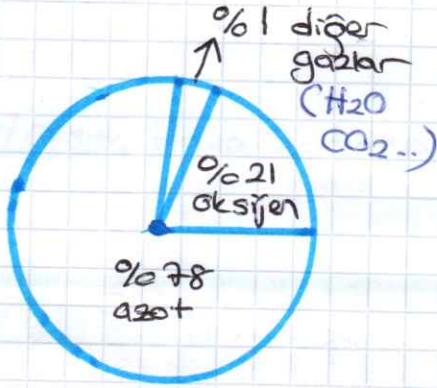 %1 diğer
gazlar
(H2O
CO2..)
%21
oksijen
%78
azot